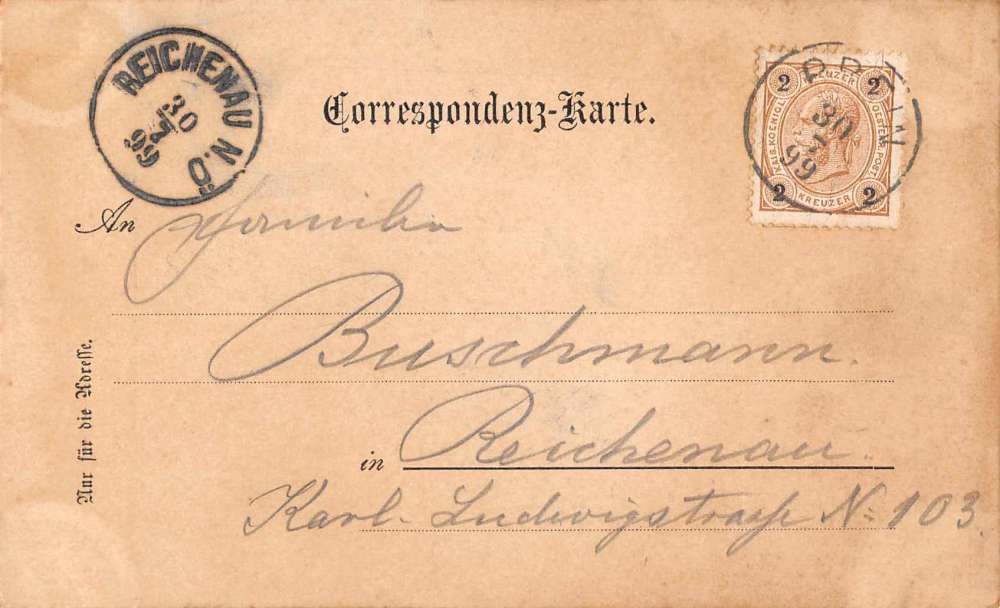 REICHENAU N.Ö
30
99
Correspondenz-Karte.
2 KREUZER 2
KAIS. KOENIGL. OESTERR. POST.
2 KREUZER 2
PREIN
30
99
An Familie
Buschmann.
in Reichenau
Karl-Ludwigstraße No 103.
Nur für die Adresse.